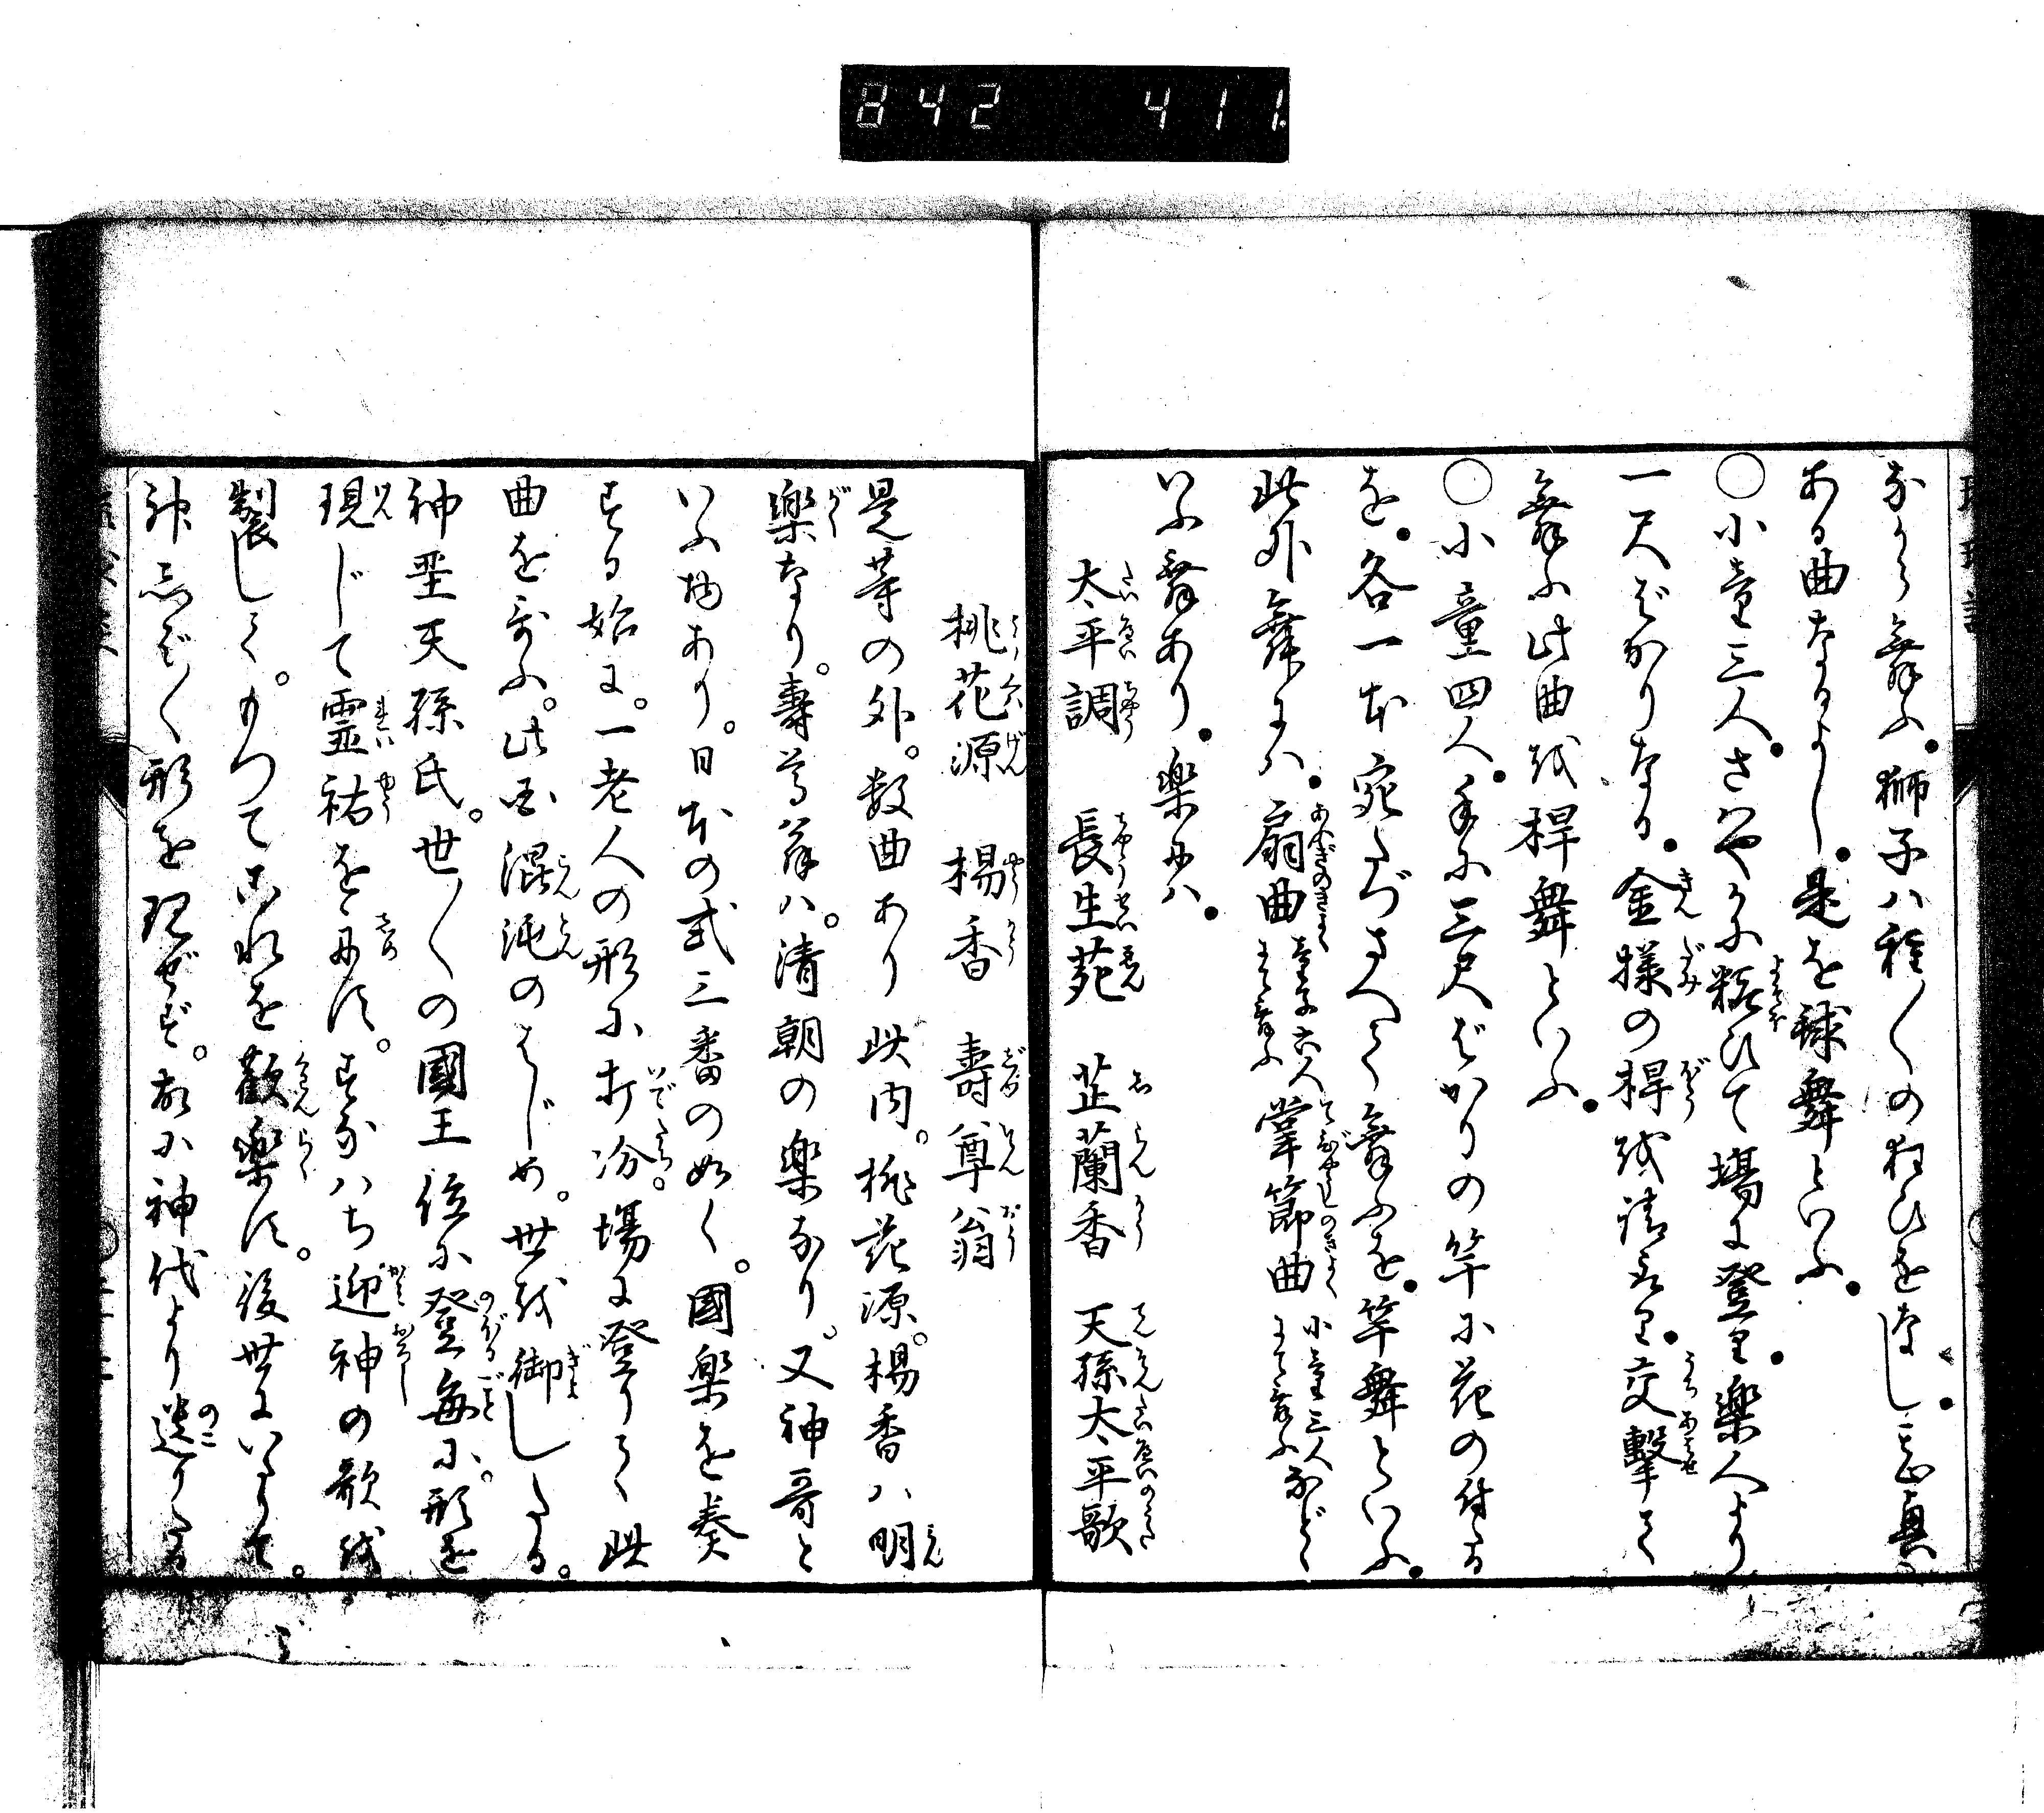 842 411
ながら舞ふ。獅子ハ種〳〵の狂ひをなし
ある曲なるよし。是を球舞といふ。
○小童三人。さハやかに粧ひて場に登り。楽人より
一尺ばかりなる。金様の桿を請とり。交撃て
舞ふ此曲を桿舞といふ。
○小童四人。手に三尺ばかりの竿に花の付たる
を。各一本宛たづさへて舞ふを。竿舞といふ。
此外舞にハ。扇曲 童子六人にて舞ふ 掌節曲 小童三人にて舞ふ などゝ
いふ舞あり。楽にハ。
太平調 長生苑 芷蘭香 天孫太平歌
桃花源 楊香 壽尊翁
是等の外。数曲あり此内。桃花源。楊香ハ明
楽なり。壽尊翁ハ。清朝の楽なり。又神哥と
いふ物あり。日本の式三番の如く。國楽を奏
する始に。一老人の形に打扮。場に登りて此
曲をうたふ。此国混沌のはじめ。世を御したる。
神聖天孫氏。世〳〵の國王位に登毎に。形を
現じて霊祐をなす。すなハち迎神の歌を
製して。もつてこれを歡楽す。後世にいたりて。
神しば〳〵形を現ぜず。故に神代より遺りたる